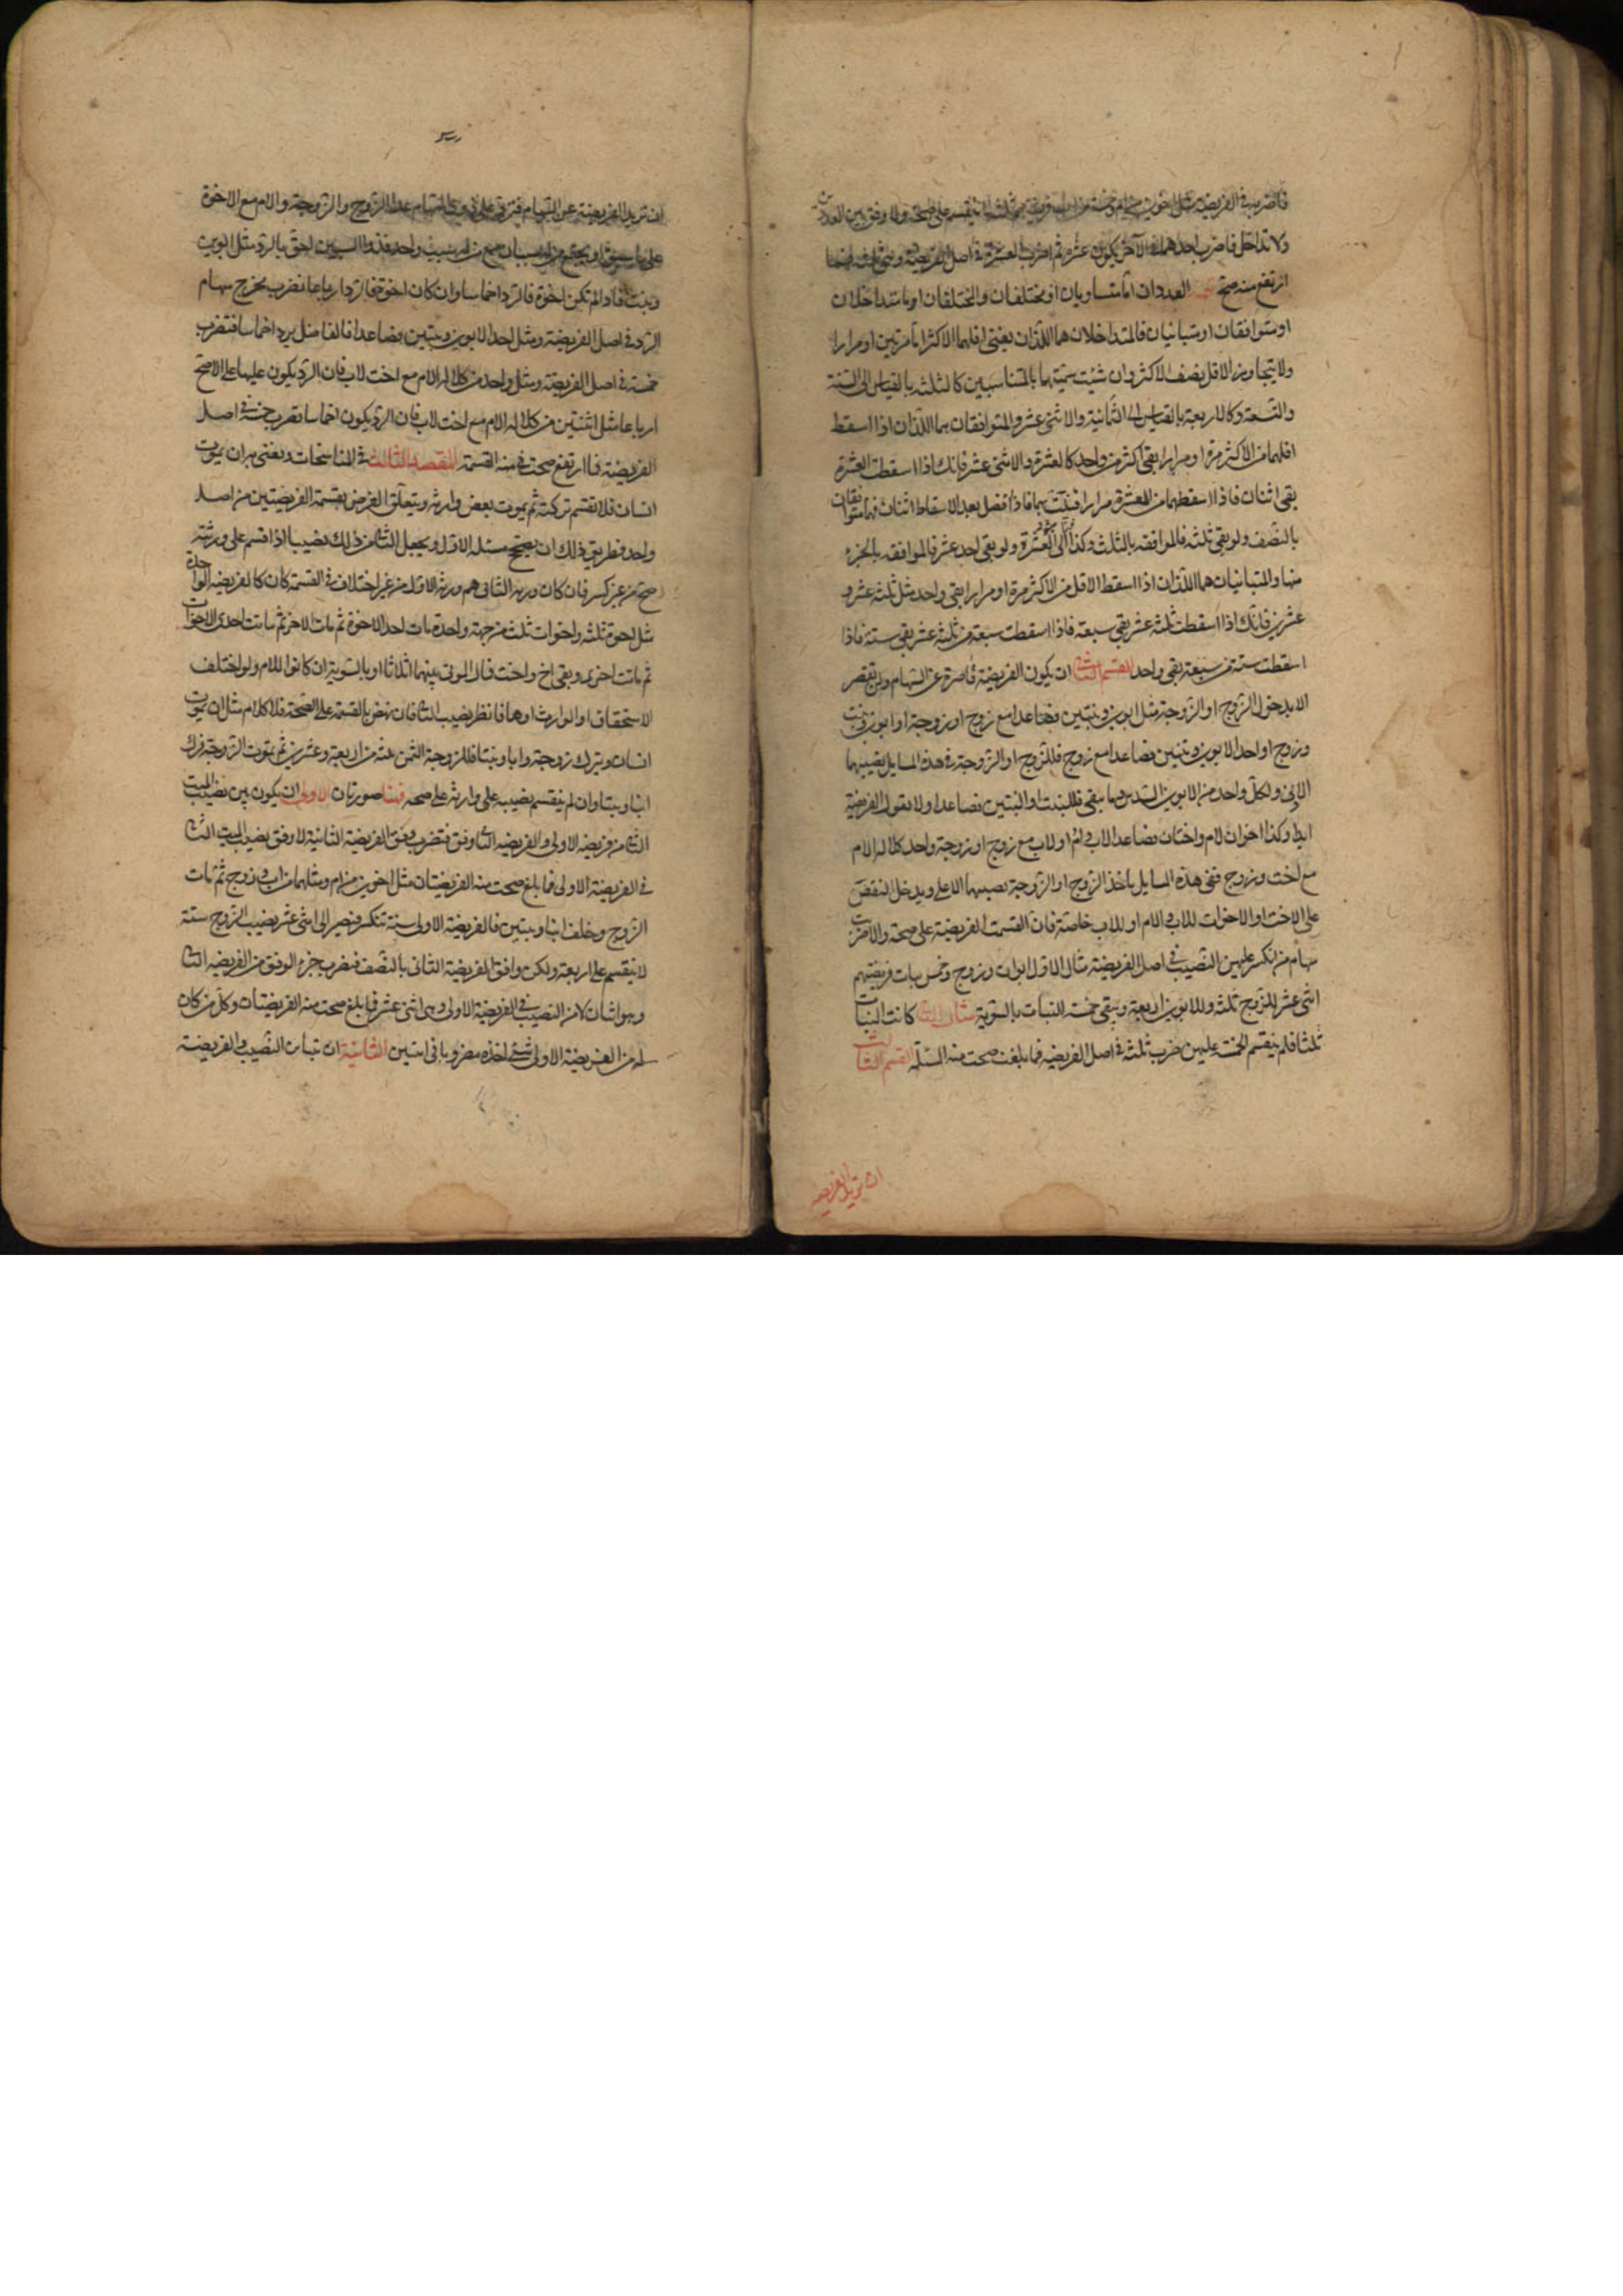 فاضربه في الفريضة مثل اخوين من ام وخمسة من اب فريضتهم ثلثة لا ينقسم على صحة ولا وفق بين العددين
ولا تداخل فاضرب احدهما في الآخر يكون عشرة ثم اضرب العشرة في اصل الفريضة وهي ثلثة فما
ارتفع منه صح العددان اما متساويان او مختلفان والمختلفان اما متداخلان
او متوافقان او متباينان فالمتداخلان هما اللذان يفنى اقلهما الاكثر اما مرتين او مرارا
ولا يتجاوز الاقل نصف الاكثر وان شئت سميتهما بالمتناسبين كالثلثه بالقياس الى الستة
والتسعة وكالاربعة بالقياس الى الثمانية والاثنى عشر والمتوافقان هما اللذان اذا اسقط
اقلهما من الاكثر مرة او مرارا بقى اكثر من واحد كالعشرة والاثنى عشر فانك اذا اسقطت العشرة
بقى اثنان فاذا اسقطهما من العشرة مرارا فنيت بهما فاذا فضل بعد الاسقاط اثنان فهما متوافقان
بالنصف ولو بقى ثلثه فالموافقه بالثلث وكذا الى العشرة ولو بقى احد عشر فالموافقه بالجزء
منها والمتباينان هما اللذان اذا اسقط الاقل من الاكثر مرة او مرارا بقى واحد مثل ثلثه عشر و
عشرين فانك اذا اسقطت ثلثة عشر بقى سبعة فاذا اسقطت سبعة من ثلثة عشر بقى ستة فاذا
اسقطت ستة من سبعة بقى واحد القسم الثانى ان يكون الفريضة قاصرة عن السهام ولن تقصر
الا بدخول الزوج او الزوجة مثل ابوين وبنتين فصاعدا مع زوج او زوجة او ابوين وبنت
وزوج او احد الابوين وبنتين فصاعدا مع زوج فللزوج او الزوجة في هذه المسايل نصيبهما
الادنى ولكل واحد من الابوين السدس وما يبقى فللبنت او البنتين فصاعدا ولا تعول الفريضة
ابدا وكذا اخوان لام واختان فصاعدا لاب وام او لاب مع زوج او زوجة واحد كلاله الام
مع اخت وزوج ففى هذه المسايل ياخذ الزوج او الزوجة نصيبهما الاعلى ويدخل النقص
على الاخت او الاخوات للاب والام او للاب خاصة فان انقسمت الفريضة على صحة والا ضربت
سهام من انكسر عليهن النصيب في اصل الفريضة مثال الاول ابوان وزوج وخمس بنات فريضتهم
اثنى عشر للزوج ثلثة وللابوين اربعة ويبقى خمسة للبنات بالسوية مثال الثانى كانت البنات
ثلثا فلم ينقسم الخمسة عليهن ضرب ثلثة في اصل الفريضه فما بلغت صحت منه المسئلة القسم الثالث
ان تزيد الفريضه
ان تزيد الفريضة عن السهام فترد على ذوى السهام عدا الزوج والزوجة والام مع الاخوة
على ما سبق او يجتمع من له سببان مع من له سبب واحد فذوا السببين احق بالرد مثل ابوين
وبنت فاذا لم تكن اخوة فالرد اخماسا وان كان اخوة فالرد ارباعا فضرب مخرج سهام
الرد في اصل الفريضة ومثل احد الابوين وبنتين فصاعدا فالفاضل يرد اخماسا فتضرب
خمسة في اصل الفريضة ومثل واحد من كلاله الام مع اخت لاب فان الرد يكون عليهما على الاصح
ارباعا مثل اثنتين من كلاله الام مع اخت لاب فان الرد يكون اخماسا تضرب خمسة في اصل
الفريضة فما ارتفع صحت منه القسمة المقصد الثالث في المناسخات ونعنى به ان يموت
انسان فلا تقسم تركته ثم يموت بعض وارثه ويتعلق الغرض بقسمة الفريضتين من اصل
واحد فطريق ذلك ان يصحح مسئله الاول ويجعل للثانى من ذلك نصيبا اذا قسم على ورثته
صح من غير كسر فان كان ورثه الثانى هم ورثه الاول من غير اختلاف في القسمة كان كالفريضه الواحدة
مثل اخوة ثلثه واخوات ثلث من جهة واحدة مات احد الاخوة ثم مات الاخر ثم ماتت احدى الاخوات
ثم ماتت اخرى وبقى اخ واخت فمال الموتى بينهما اثلاثا او بالسوية ان كانوا للام ولو اختلف
الاستحقاق او الوارث او هما فانظر نصيب الثانى فان نهض بالقسمة على الصحة فلا كلام مثل ان يموت
انسان ويترك زوجة وابنا وبنتا فللزوجة الثمن ثلثه من اربعة وعشرين ثم تموت الزوجة فتترك
ابنا وبنتا وان لم ينقسم نصيبه على وارثه على صحه فهنا صورتان الاولى ان يكون بين نصيب الميت
الثانى من فريضه الاولى والفريضه الثانيه وفق فتضرب وفق الفريضة الثانية لا وفق نصيب الميت الثانى
في الفريضة الاولى فما بلغ صحت منه الفريضتان مثل اخوين من ام ومثلهما من اب وزوج ثم مات
الزوج وخلف ابنا وبنتين فالفريضة الاولى ستة تنكسر فتصير الى اثنى عشر نصيب الزوج ستة
لا ينقسم على اربعة ولكن وافق الفريضة الثانى بالنصف فتضرب جزء الوفق من الفريضه الثانيه
وهو اثنان لا من النصيب في الفريضة الاولى وهى اثنى عشر فما بلغ صحت منه الفريضتان وكل من كان
له من الفريضة الاولى شئ اخذه مضروبا في اثنين الثانية ان تباين النصيب والفريضة